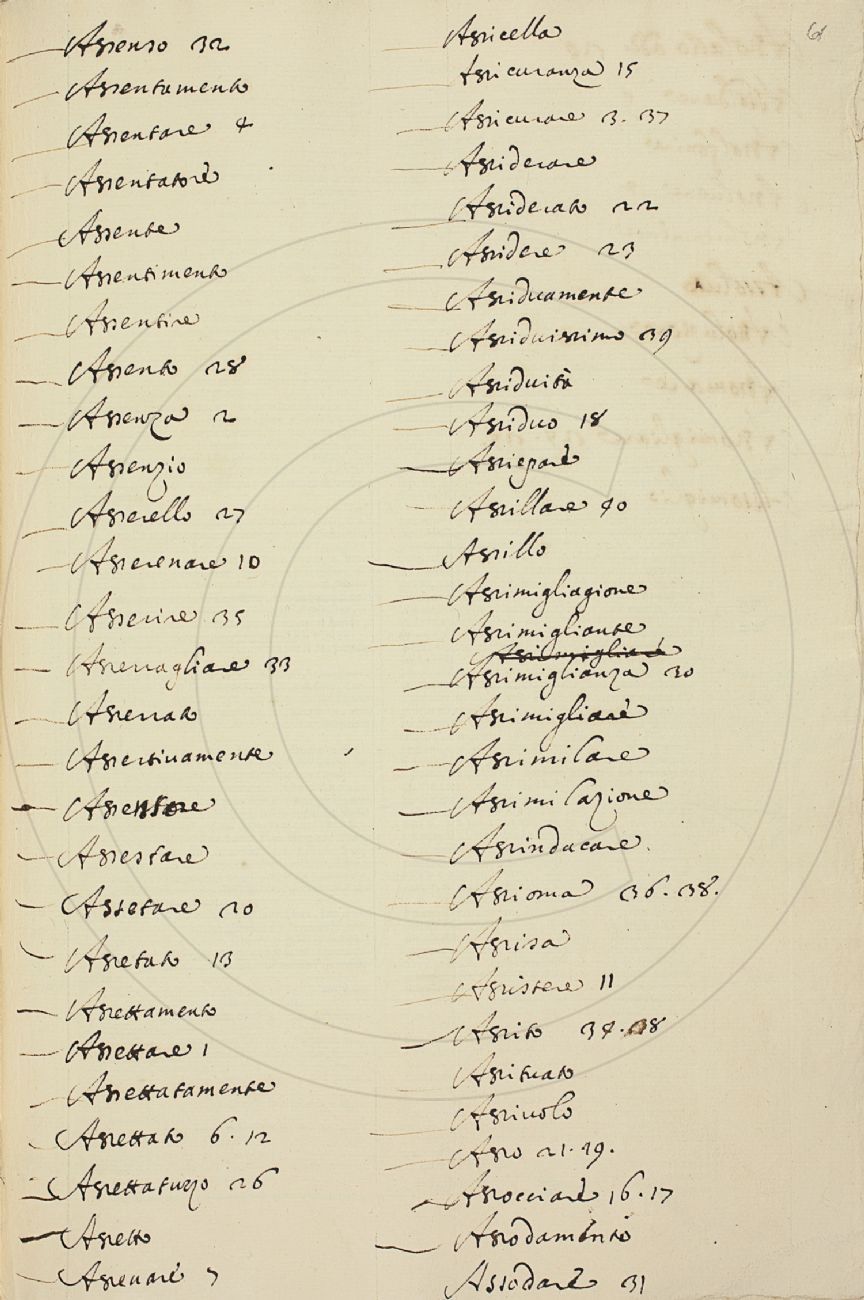 Assenso 32
Assentamento
Assentare 4
Assentatore
Assente
Assentimento
Assentire
Assento 28
Assenza 2
Assenzio
Asserello 27
Asserenare 10
Asserire 35
Asserragliare 33
Asserrato
Assertivamente
Assestare
Assetare 20
Assetato 13
Assettamento
Assettare 1
Assettatamente
Assettato 6. 12
Assettatuzzo 26
Assetto
Assevare 7
Assicella
Assicuranza 15
Assicurare 3. 37
Assiderare
Assiderato 22
Assidere 23
Assiduamente
Assiduissimo 39
Assiduità
Assiduo 18
Assiepare
Assillare 40
Assillo
Assimigliagione
Assimigliante
Assimigliare
Assimiglianza 30
Assimigliare
Assimilare
Assimilazione
Assinducare
Assioma 36. 38.
Assisa
Assistere 11
Assito 34. 38
Assituato
Assivolo
Asso 21. 29.
Assocciare 16. 17
Assodamento
Assodare 31